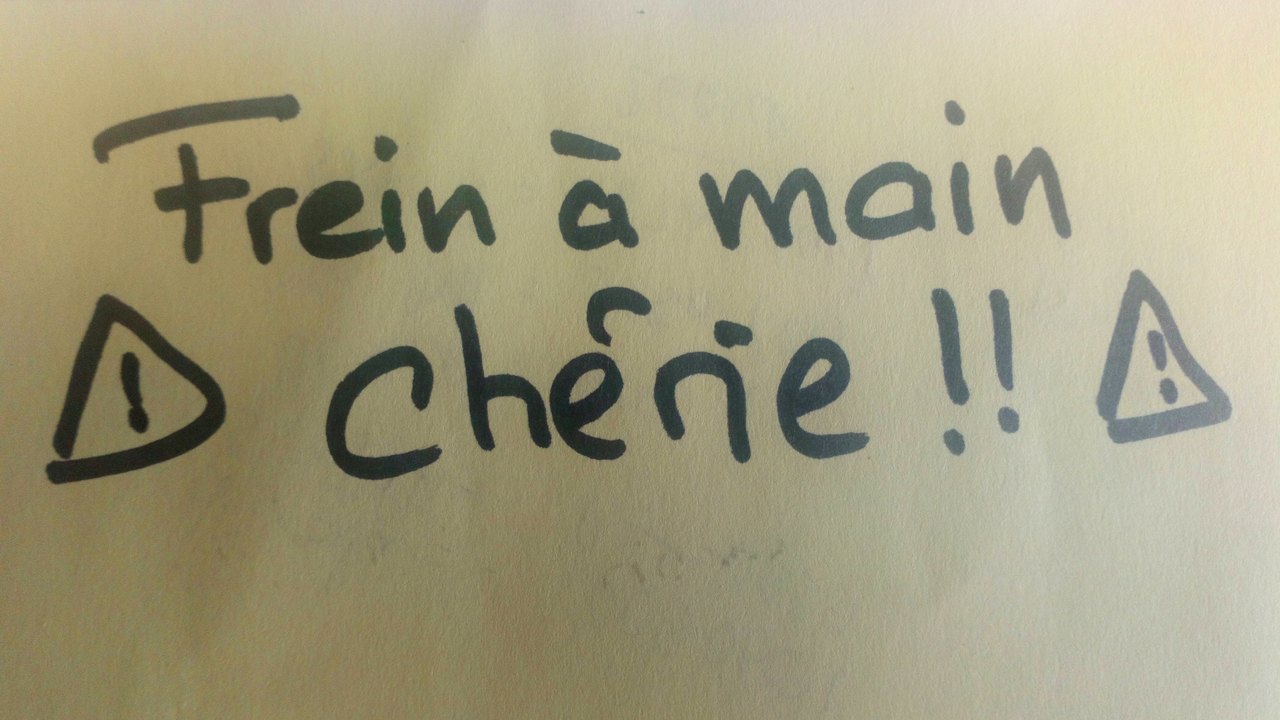 Frein à main
⚠ chérie !! ⚠